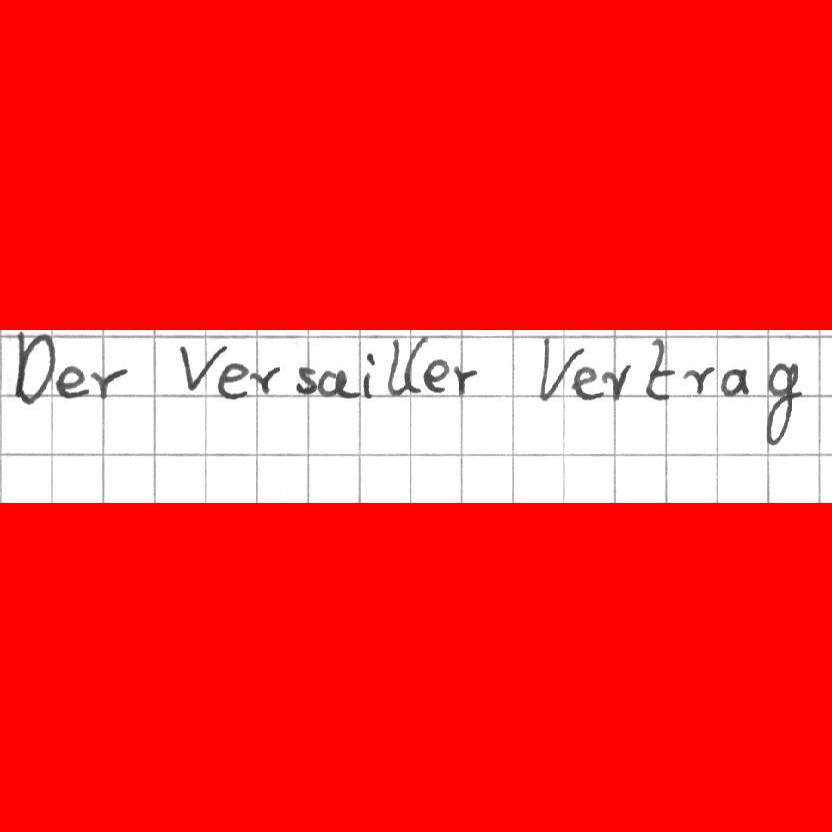 Der Versailler Vertrag